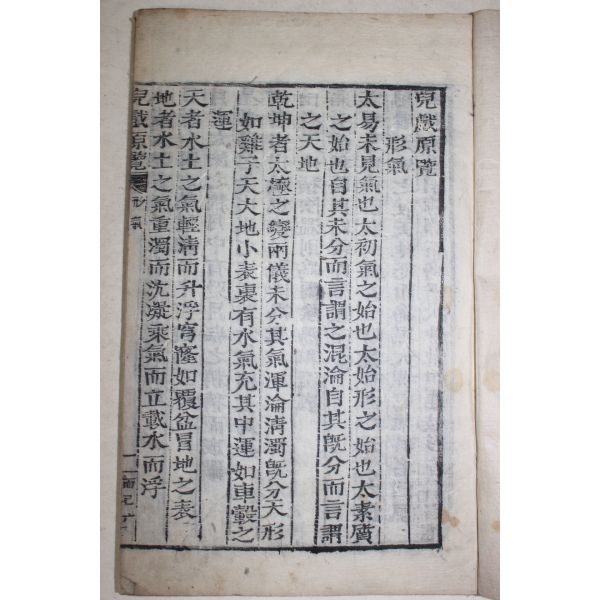 兒戱原覽
形氣
太易未見氣也太初氣之始也太始形之始也太素質
之始也自其未分而言謂之混淪自其旣分而言謂
之天地
乾坤者太極之變兩儀未分其氣渾淪淸濁旣分天形
如雞子天大地小表裏有水氣充其中運如車轂之
運
天者水土之氣輕淸而升浮穹窿如覆盆冒地之表
地者水土之氣重濁而沈凝乘氣而立載水而浮
兒戱原覽
形氣
一